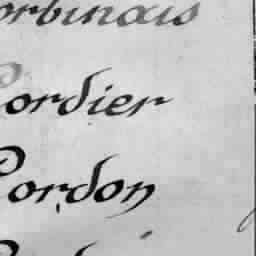 orbinais
Cordier
Cordon